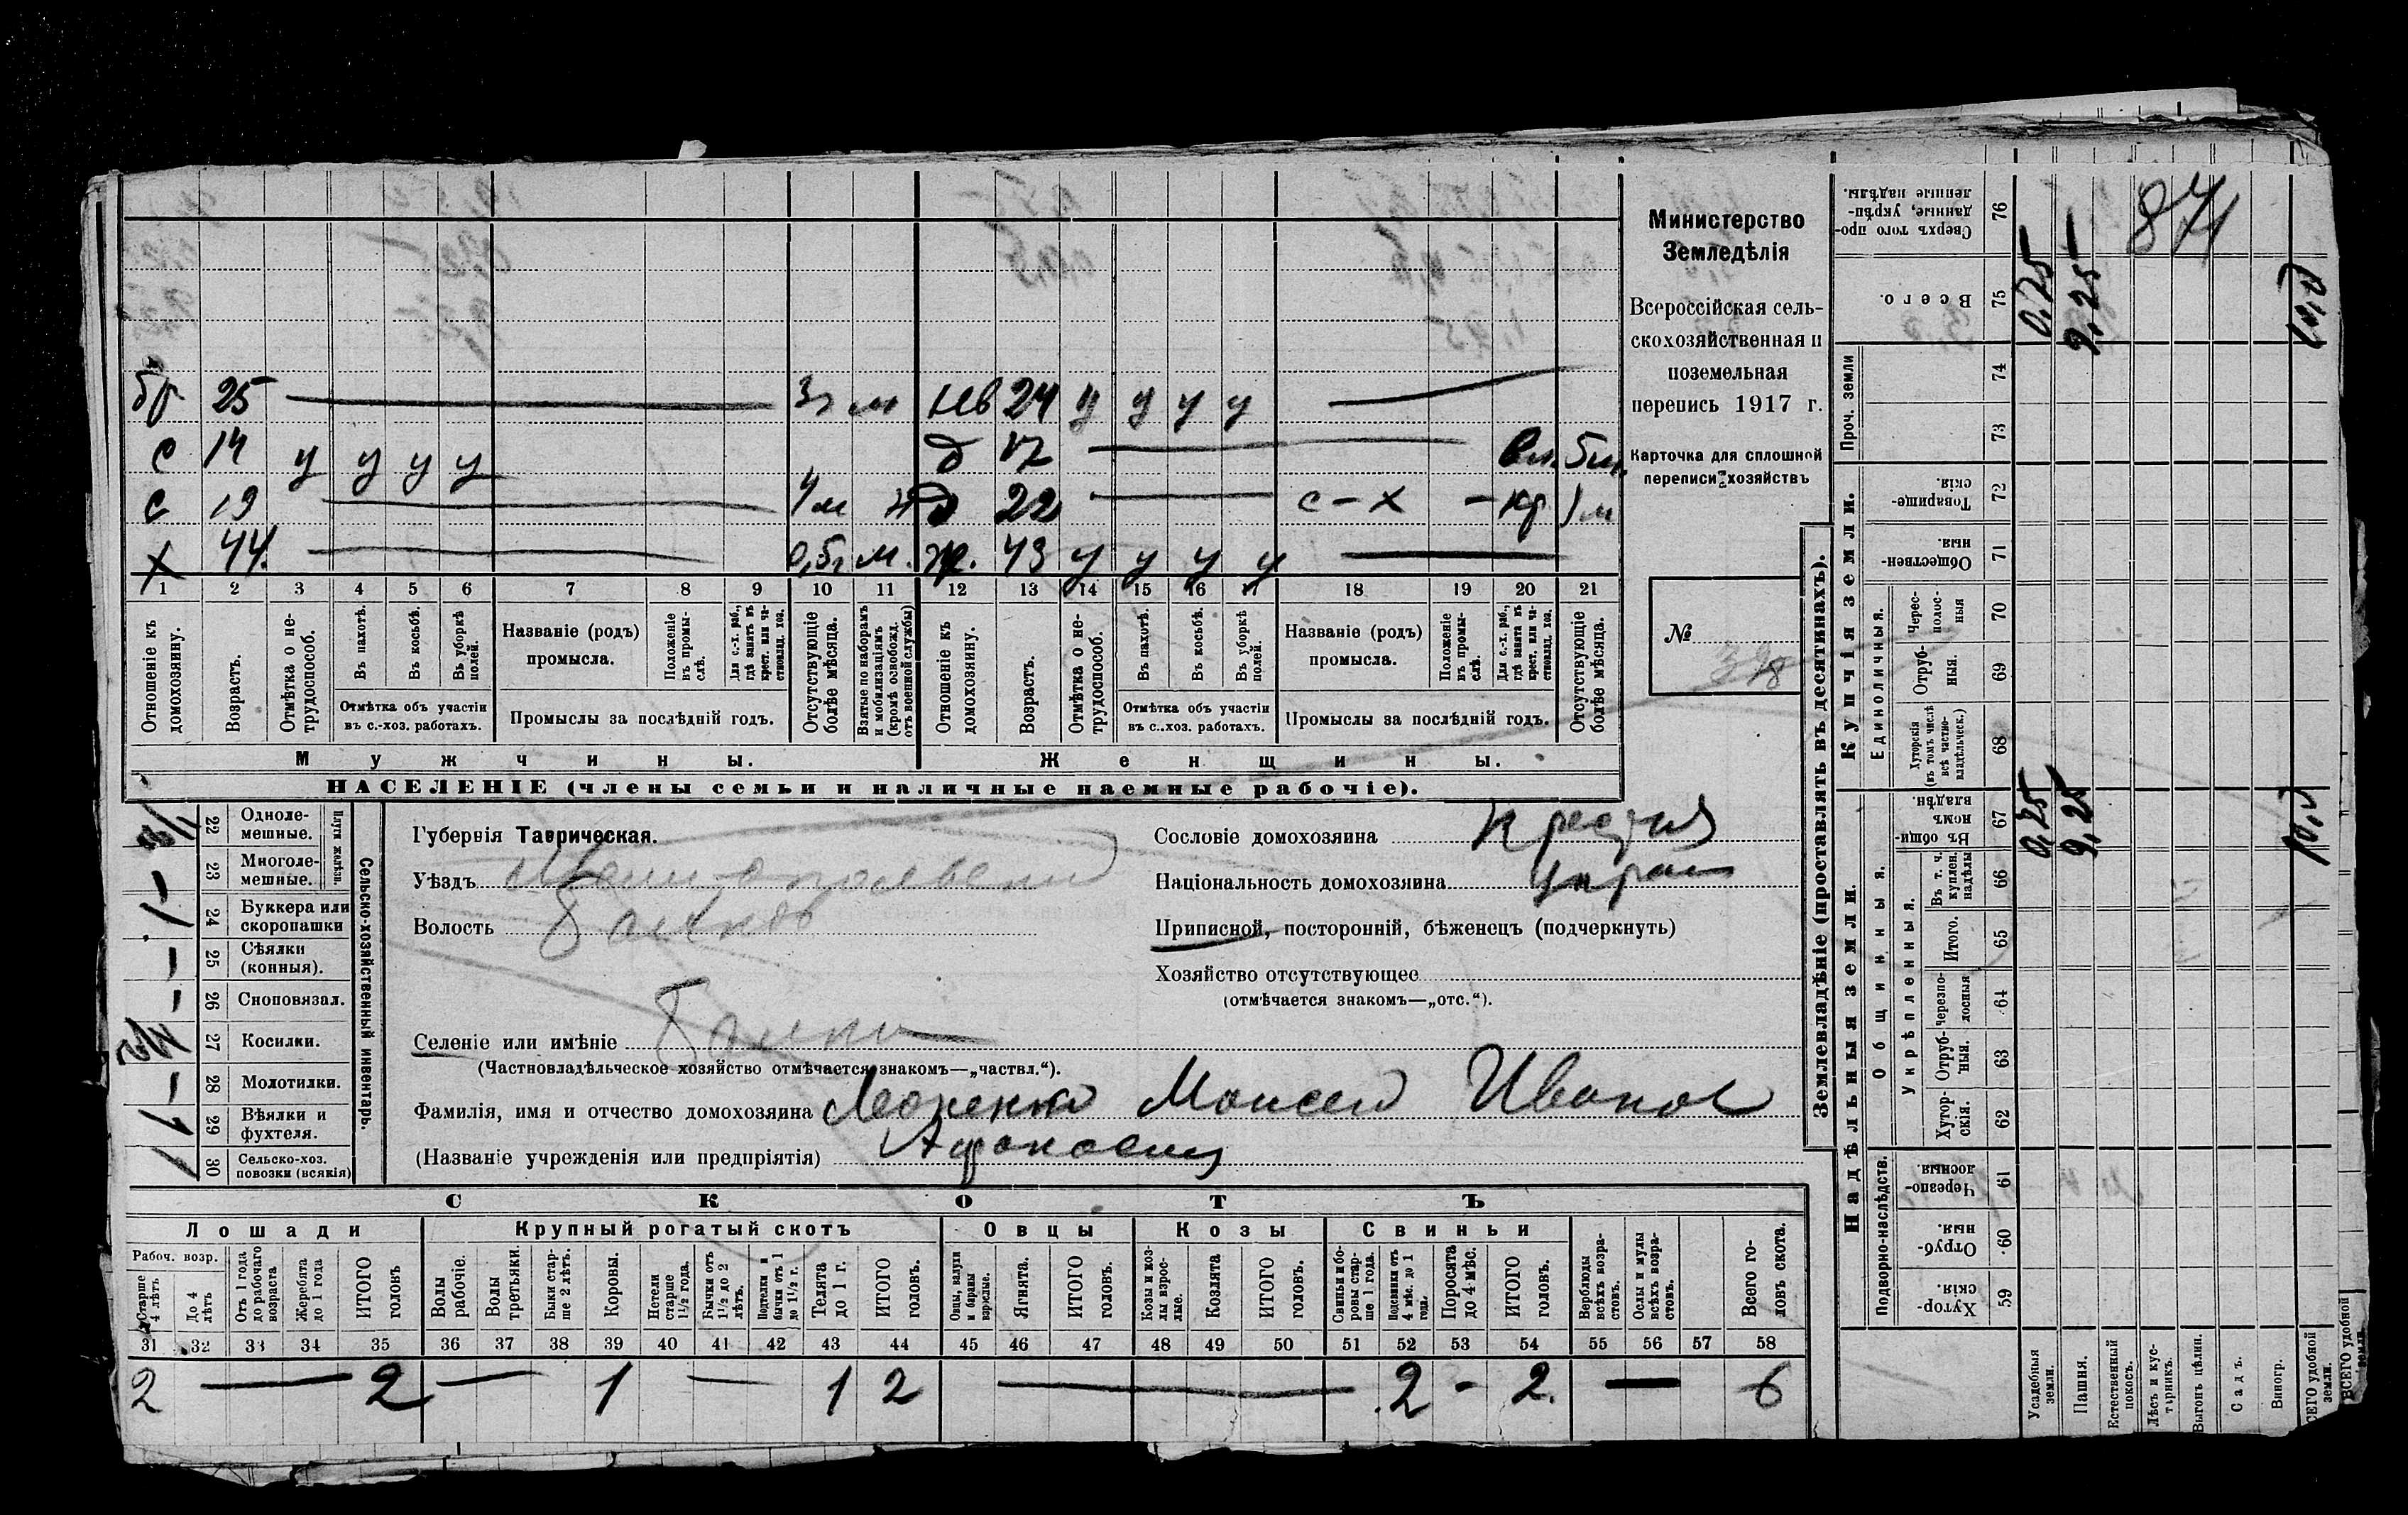 Министерство
Земледѣлія
Всероссійская сель-
скохозяйственная и
поземельная
перепись 1917 г.
Карточка для сплошной
переписи хозяйствъ
№ 378
874
бр 25 3 г м нв 24 у у у у
с 14 у у у у д 17 5 м.
с 19 4 м д 22 с-х - кр 1 м
х 44. 0,5 г м. ж. 43 у у у у
1 2 3 4 5 6 7 8 9 10 11 12 13 14 15 16 17 18 19 20 21
Отношеніе къ домохозяину.
Возрастъ.
Отмѣтка о не-трудоспособ.
Въ пахотѣ.
Въ косьбѣ.
Въ уборкѣ полей.
Отмѣтка объ участіи въ с.-хоз. работахъ.
Названіе (родъ) промысла.
Положеніе въ промы-слѣ.
Для с.-х. раб., гдѣ занятъ въ крест. или ча-стновлад. хоз.
Промыслы за послѣдній годъ.
Отсутствующіе болѣе мѣсяца.
Взятые по наборамъ и мобилизаціямъ (кромѣ освобожд. отъ военной службы)
Отношеніе къ домохозяину.
Возрастъ.
Отмѣтка о не-трудоспособ.
Въ пахотѣ.
Въ косьбѣ.
Въ уборкѣ полей.
Отмѣтка объ участіи въ с.-хоз. работахъ.
Названіе (родъ) промысла.
Положеніе въ промы-слѣ.
Для с.-х. раб., гдѣ занята въ крест. или ча-стновлад. хоз.
Промыслы за послѣдній годъ.
Отсутствующіе болѣе мѣсяца.
Мужчины. Женщины.
НАСЕЛЕНІЕ (члены семьи и наличные наемные рабочіе).
Сельско-хозяйственный инвентарь.
Плуги желѣзн.
22 Одноле-мешные.
23 Многоле-мешные. —
24 Буккера или скоропашки 1
25 Сѣялки (конныя). —
26 Сноповязал. —
27 Косилки.
28 Молотилки. —
29 Вѣялки и фухтеля. 1
30 Сельско-хоз. повозки (всякія) 1
Губернія Таврическая.
Уѣздъ Мелитопольскій
Волость
Селеніе или имѣніе
(Частновладѣльческое хозяйство отмѣчается знакомъ—„частвл.“).
Фамилія, имя и отчество домохозяина Моисей Иванов
Афанасиец
(Названіе учрежденія или предпріятія)
Сословіе домохозяина
Національность домохозяина Украи
Приписной, посторонній, бѣженецъ (подчеркнуть)
Хозяйство отсутствующее
(отмѣчается знакомъ—„отс.“).
СКОТЪ
Лошади Крупный рогатый скотъ Овцы Козы Свиньи
Рабоч. возр.
Старше 4 лѣтъ
До 4 лѣтъ
Отъ 1 года до рабочаго возраста
Жеребята до 1 года
ИТОГО головъ
Волы рабочіе.
Волы третьяки.
Быки стар-ше 2 лѣтъ.
Коровы.
Нетели старше 1½ года.
Бычки отъ 1½ до 2 лѣтъ.
Подтелки и бычки отъ 1 до 1½ г.
Телята до 1 г.
ИТОГО головъ.
Овцы, валухи и бараны взрослые.
Ягнята.
ИТОГО головъ.
Козы и коз-лы взрос-лые.
Козлята
ИТОГО головъ.
Свиньи и бо-ровы стар-ше 1 года.
Подсвинки отъ 4 мѣс. до 1 года.
Поросята до 4 мѣс.
ИТОГО головъ.
Верблюды всѣхъ возра-стовъ.
Ослы и мулы всѣхъ возра-стовъ.
Всего го-ловъ скота.
31 32 33 34 35 36 37 38 39 40 41 42 43 44 45 46 47 48 49 50 51 52 53 54 55 56 57 58
2 — 2 — 1 — 1 2 — 2 - 2. — 6
Землевладѣніе (проставлять въ десятинахъ).
Надѣльныя земли. Купчія земли. Проч. земли
Подворно-наслѣдств. Общинныя. Единоличныя.
Укрѣпленныя.
59 Хутор-скія.
60 Отруб-ныя.
61 Черезпо-лосныя
62 Хутор-скія.
63 Отруб-ныя.
64 Черезпо-лосныя
65 Итого.
66 Въ т. ч. куплен. надѣлы
67 Въ общи-номъ владѣн.
68 Хуторскія (въ томъ числѣ всѣ частно-владѣльческ.)
69 Отруб-ныя.
70 Черес-полос-ныя
71 Обществен-ныя.
72 Товарище-скія.
73
74
75 Всего.
76 Сверхъ того про-данные, укрѣп-ленные надѣлы.
Усадебныя земли. 0,25 0,25 —
Пашня. 9,25 9,25 —
Естественный покосъ.
Лѣсъ и кус-тарникъ.
Выгонъ цѣлин.
Садъ.
Виногр.
ВСЕГО удобной земли.
ВСЕГО удобной земли.